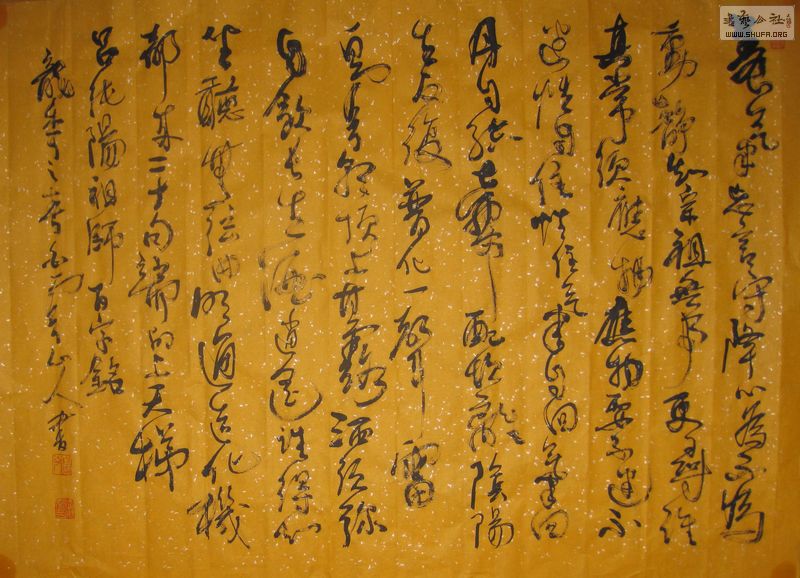 書法公社
WWW.SHUFA.ORG
養氣忘言守降心為不為
動靜知宗祖無事更尋誰
真常須應物應物要不迷不
迷性自住性住氣自回氣回
丹自結壺中配坎離陰陽
生反復普化一聲雷
白雲朝頂上甘露洒須彌
自飲長生酒逍遙誰得知
坐聽無弦曲明通造化機
都来二十句端的上天梯
吕純陽祖師百字銘
龍山人書